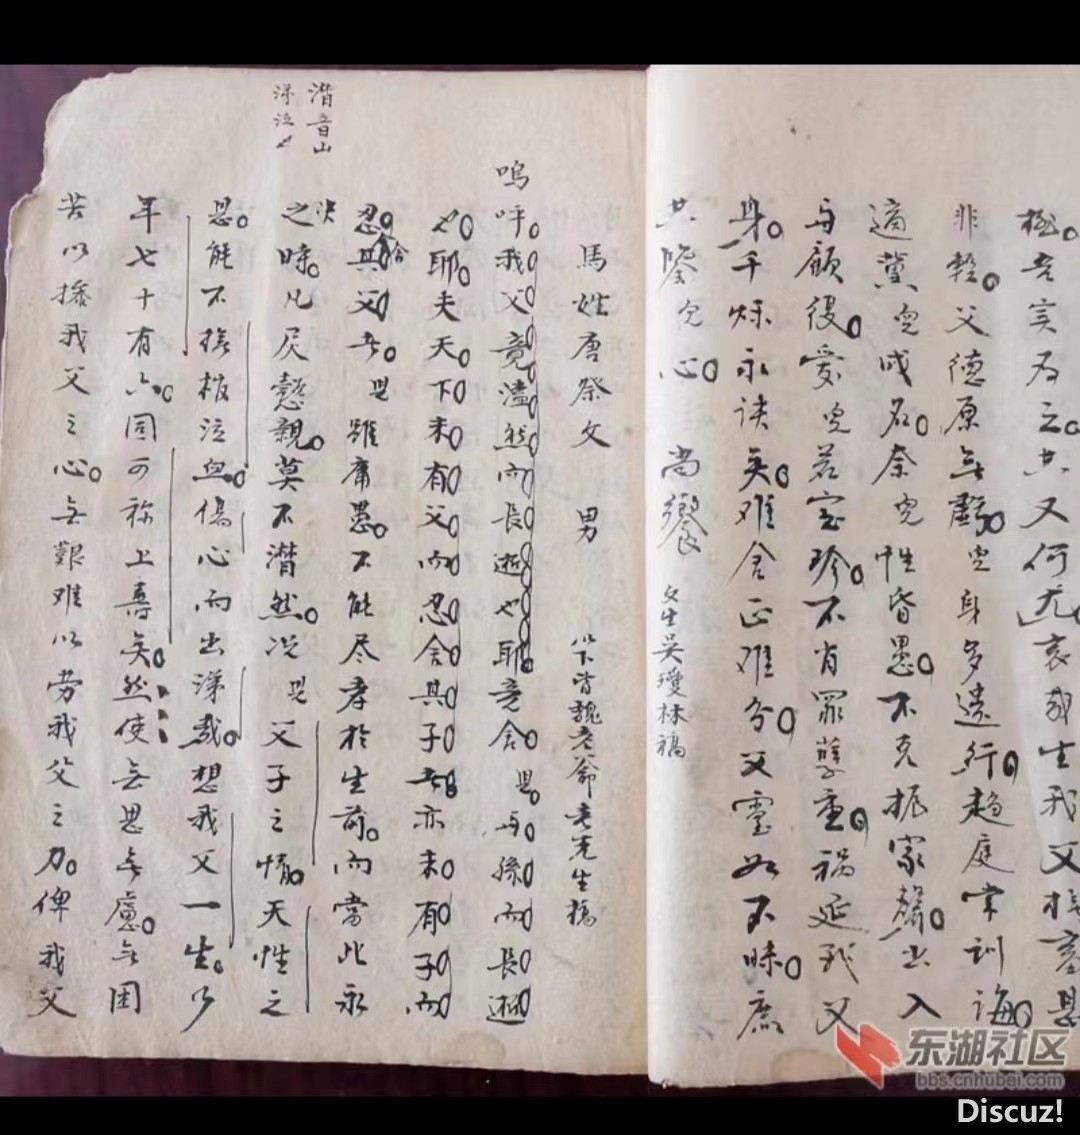 極吾實為之其又何尤哀我生我父
非輕父德原無虧兒身多遺行趨庭常訓誨
適黨兒成名奈兒性昏愚不克振家聲出入
与顧復愛兒若宝珍不肖罪孽重祸延我父
身千烁永诀矣难舍正难分父霊如不昧庶
其鑒兒心 尚饗 文生吴瓊林稿
馬姓唐祭文 男
嗚呼我父竟溘然而長逝也耶竟舍 与孫而長逝
耶夫天下未有父而忍舍其子者亦未有子而
忍舍其父者 雖庸愚不能尽孝於生前而當此永
诀之時凡戻慤親莫不潸然况 父子之情天性之
恩能不搥板泣血傷心而出涕哉想我父一生
年七十有六固可称上壽矣然使無思無慮無困
苦以撄我父之心無艱难以劳我父之力俾我父
潸音山
涕泣
东湖社区
bbs.cnhubei.com
Discuz!